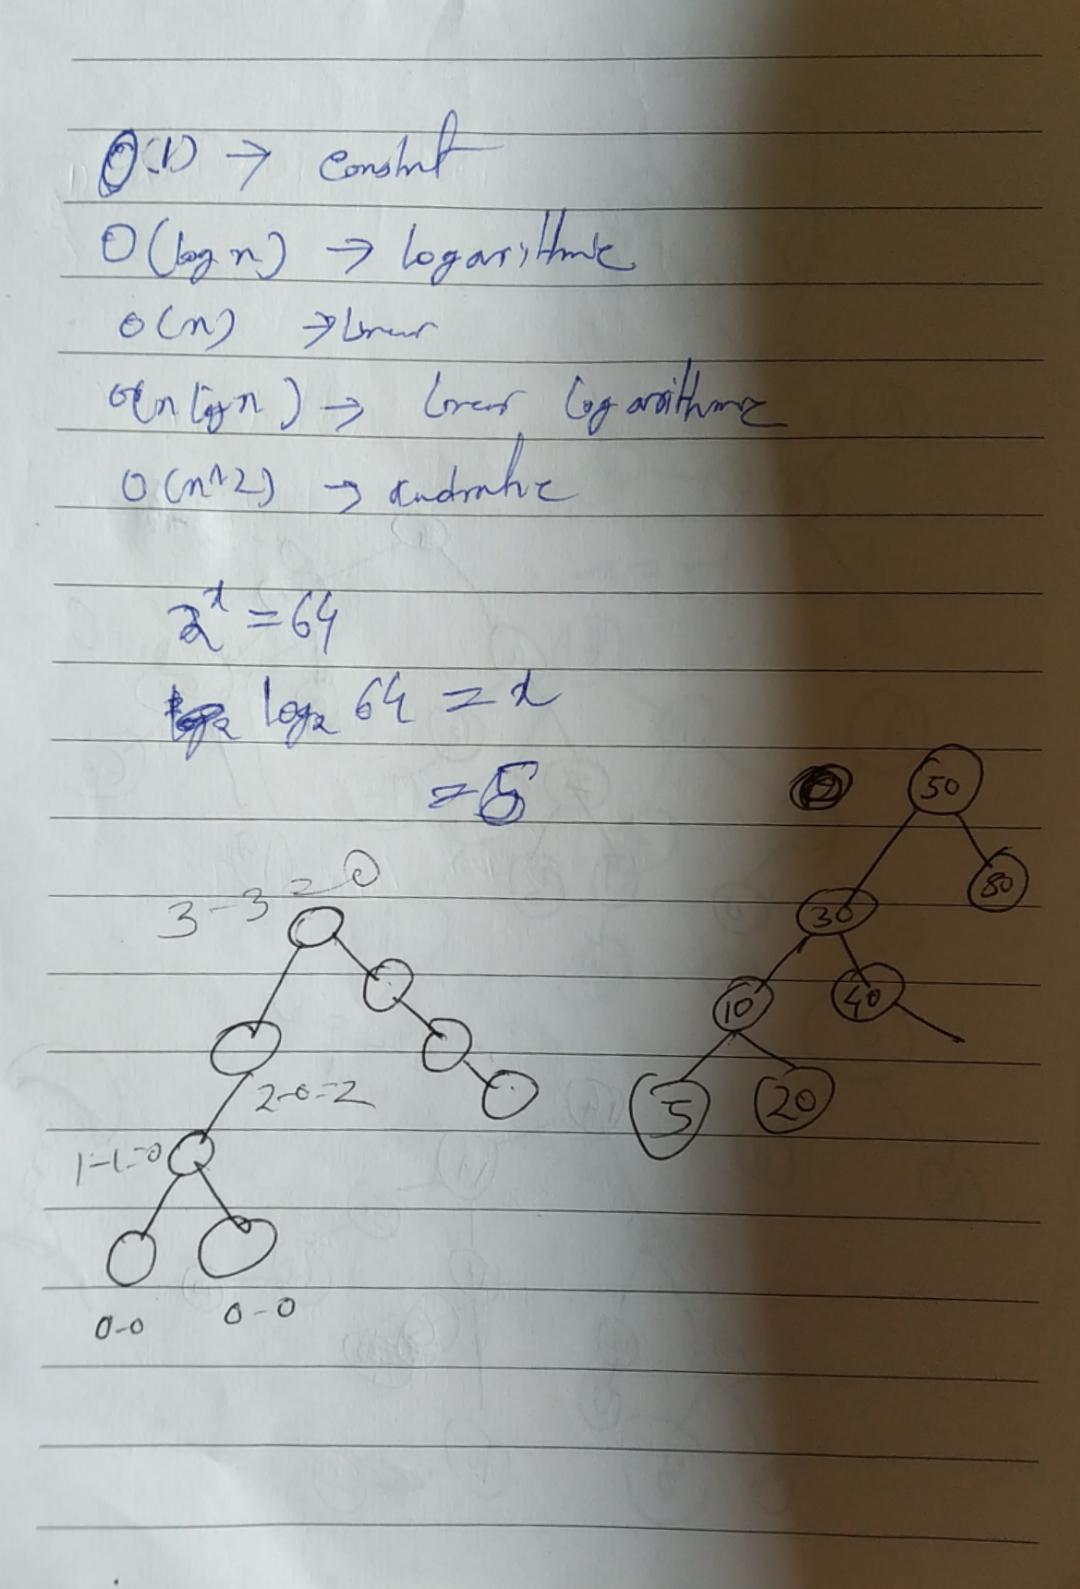 O(1) → constnt
O(log n) → logarithmic
O(n) → linear
O(n log n) → linear logarithmic
O(n^2) → qudratic
2^x = 64
log₂ 64 = x
= 6
50
80
30
10
40
5
20
3-3=0
2-0=2
1-1=0
0-0
0-0